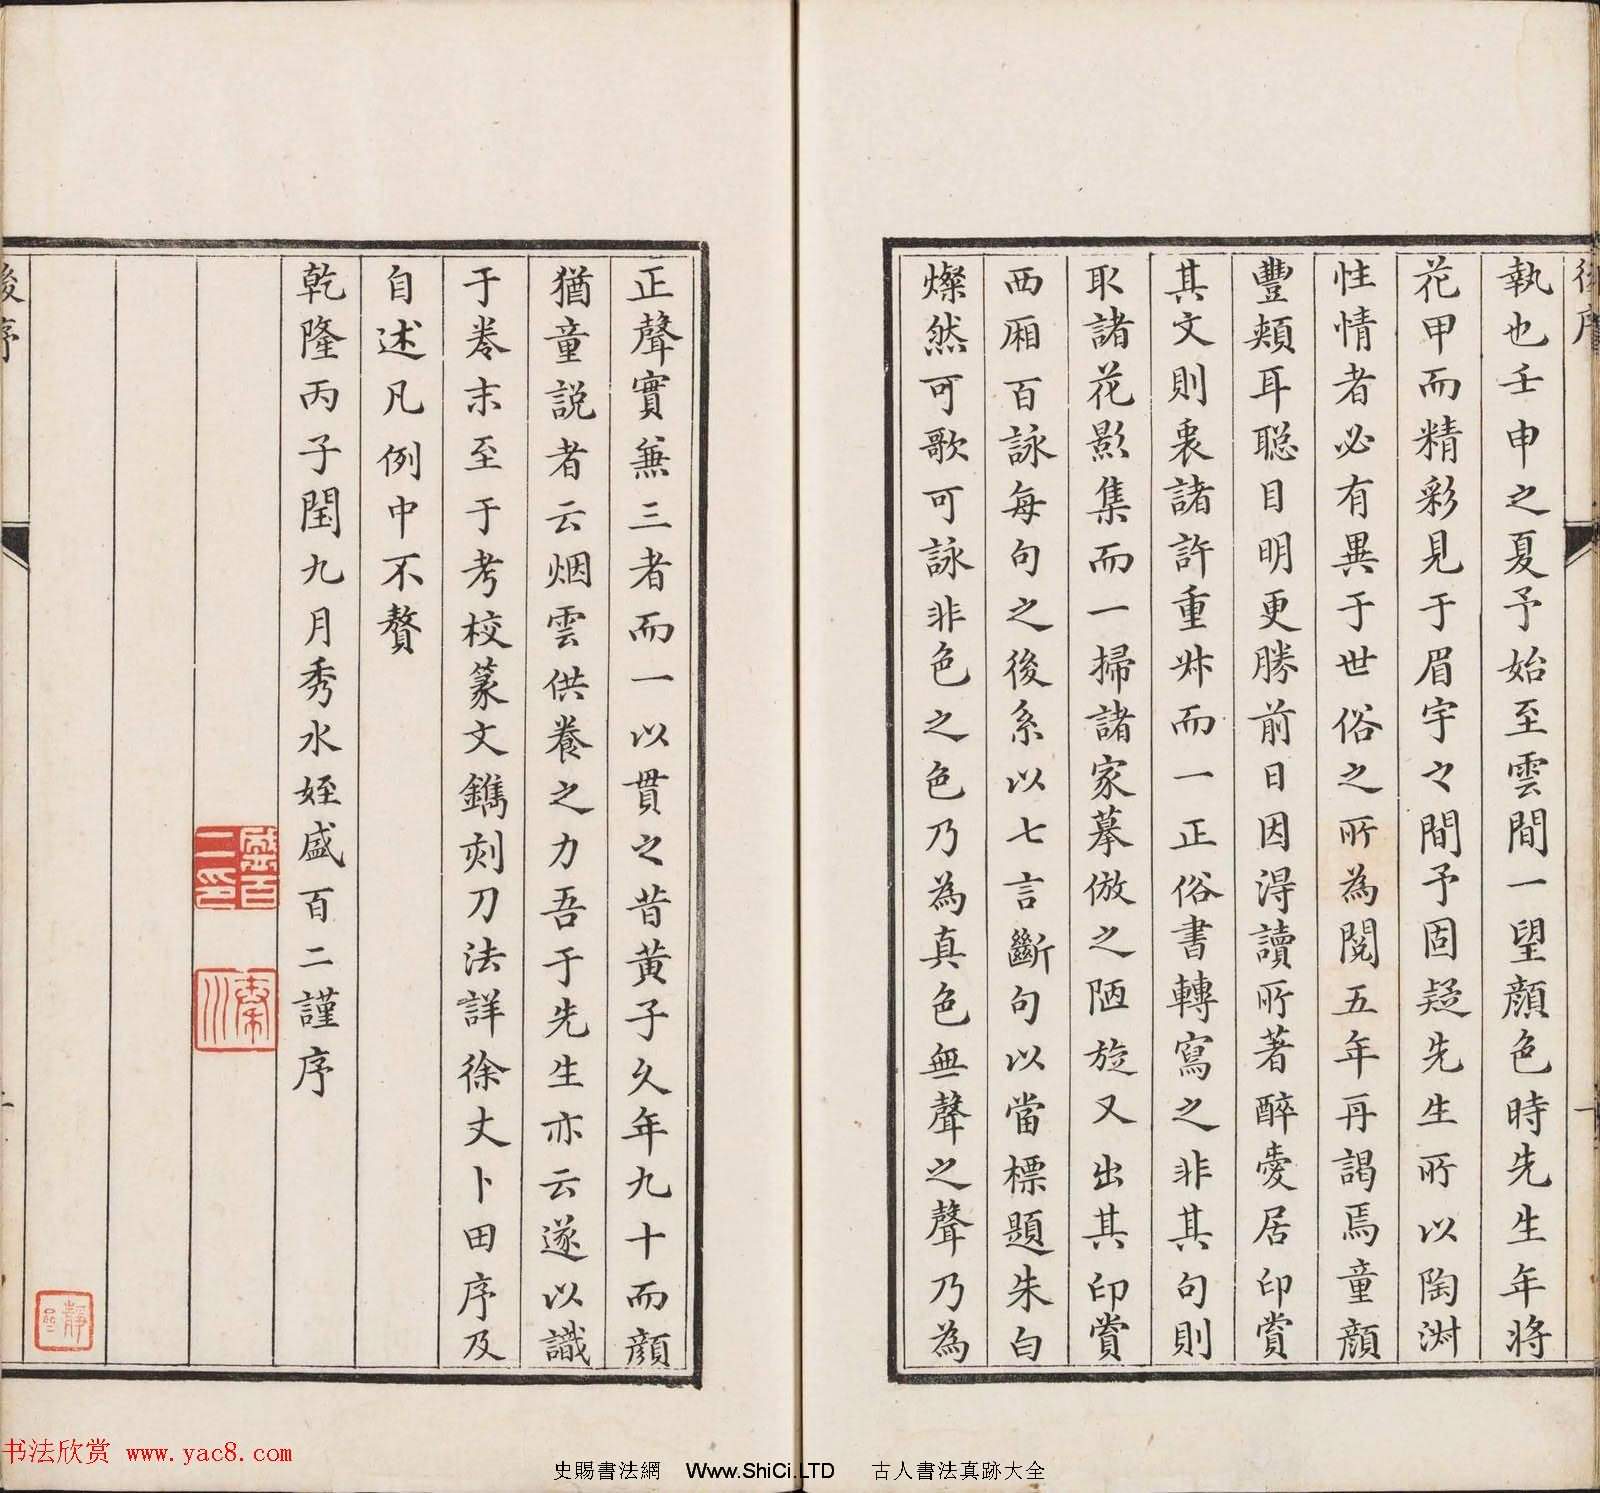 後序
執也壬申之夏予始至雲間一望顏色時先生年將
花甲而精彩見于眉宇之間予固疑先生所以陶淑
性情者必有異于世俗之所為閱五年再謁焉童顏
豐頰耳聡目明更勝前日因淂讀所著醉愛居印賞
其文則衷諸許重叔而一正俗書轉寫之非其句則
取諸花影集而一掃諸家摹倣之陋旋又出其印賞
西厢百詠每句之後系以七言斷句以當標題朱白
燦然可歌可詠非色之色乃為真色無聲之聲乃為
正聲實兼三者而一以貫之昔黃子久年九十而顏
猶童説者云烟雲供養之力吾于先生亦云遂以識
于卷末至于考校篆文鐫刻刀法詳徐丈卜田序及
自述凡例中不贅
乾隆丙子閏九月秀水姪盛百二謹序
盛百二印
秦川
後序
二
书法欣赏 www.yac8.com
史賜書法網 Www.ShiCi.LTD 古人書法真跡大全